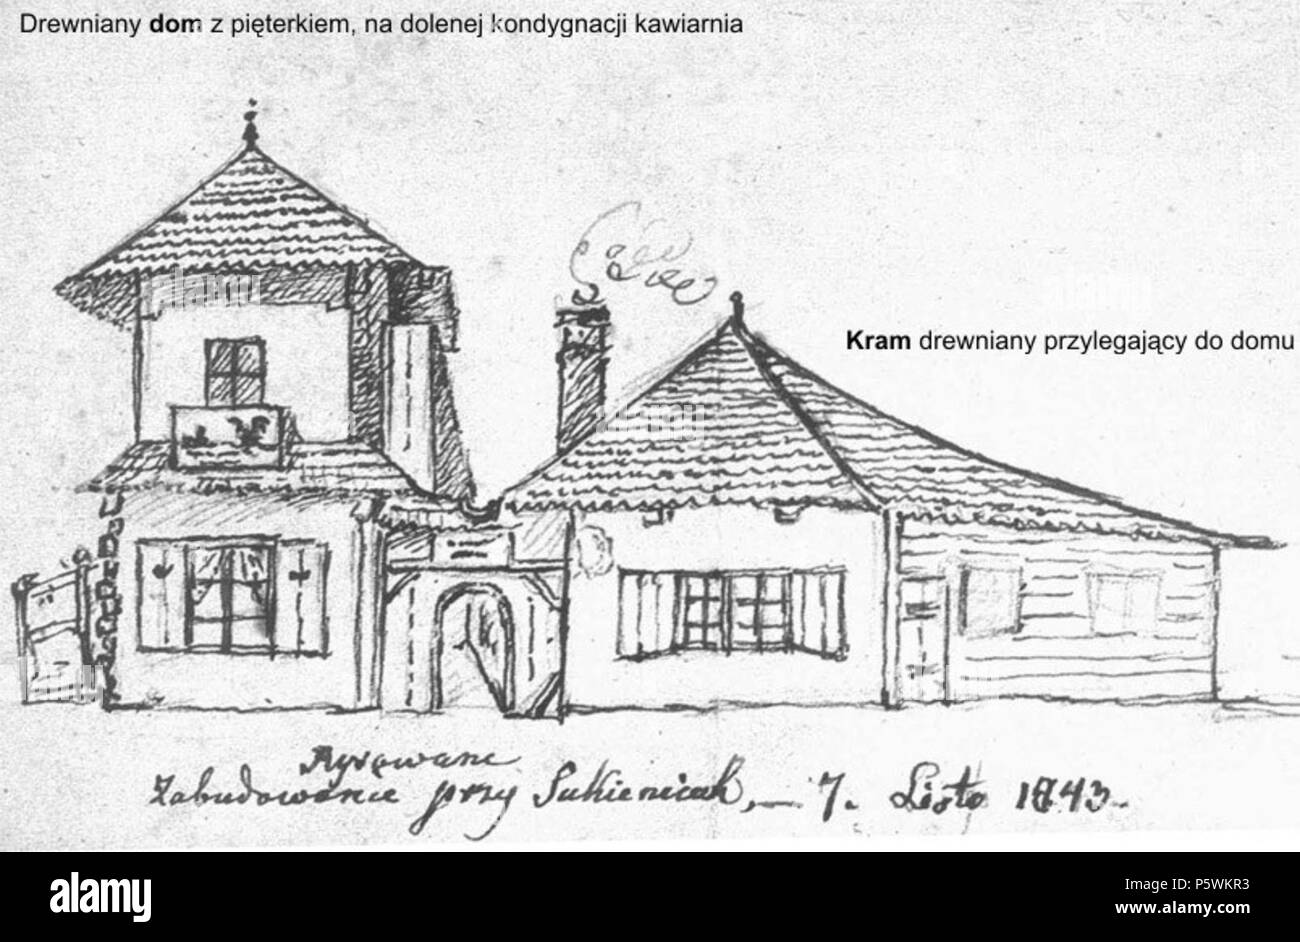 Drewniany dom z pięterkiem, na dolenej kondygnacji kawiarnia
Kram drewniany przylegający do domu
Rysowane
Zabudowanie przy Sukienicach, — 7. Listo 1843.
alamy
Image ID: P5WKR3
www.alamy.com